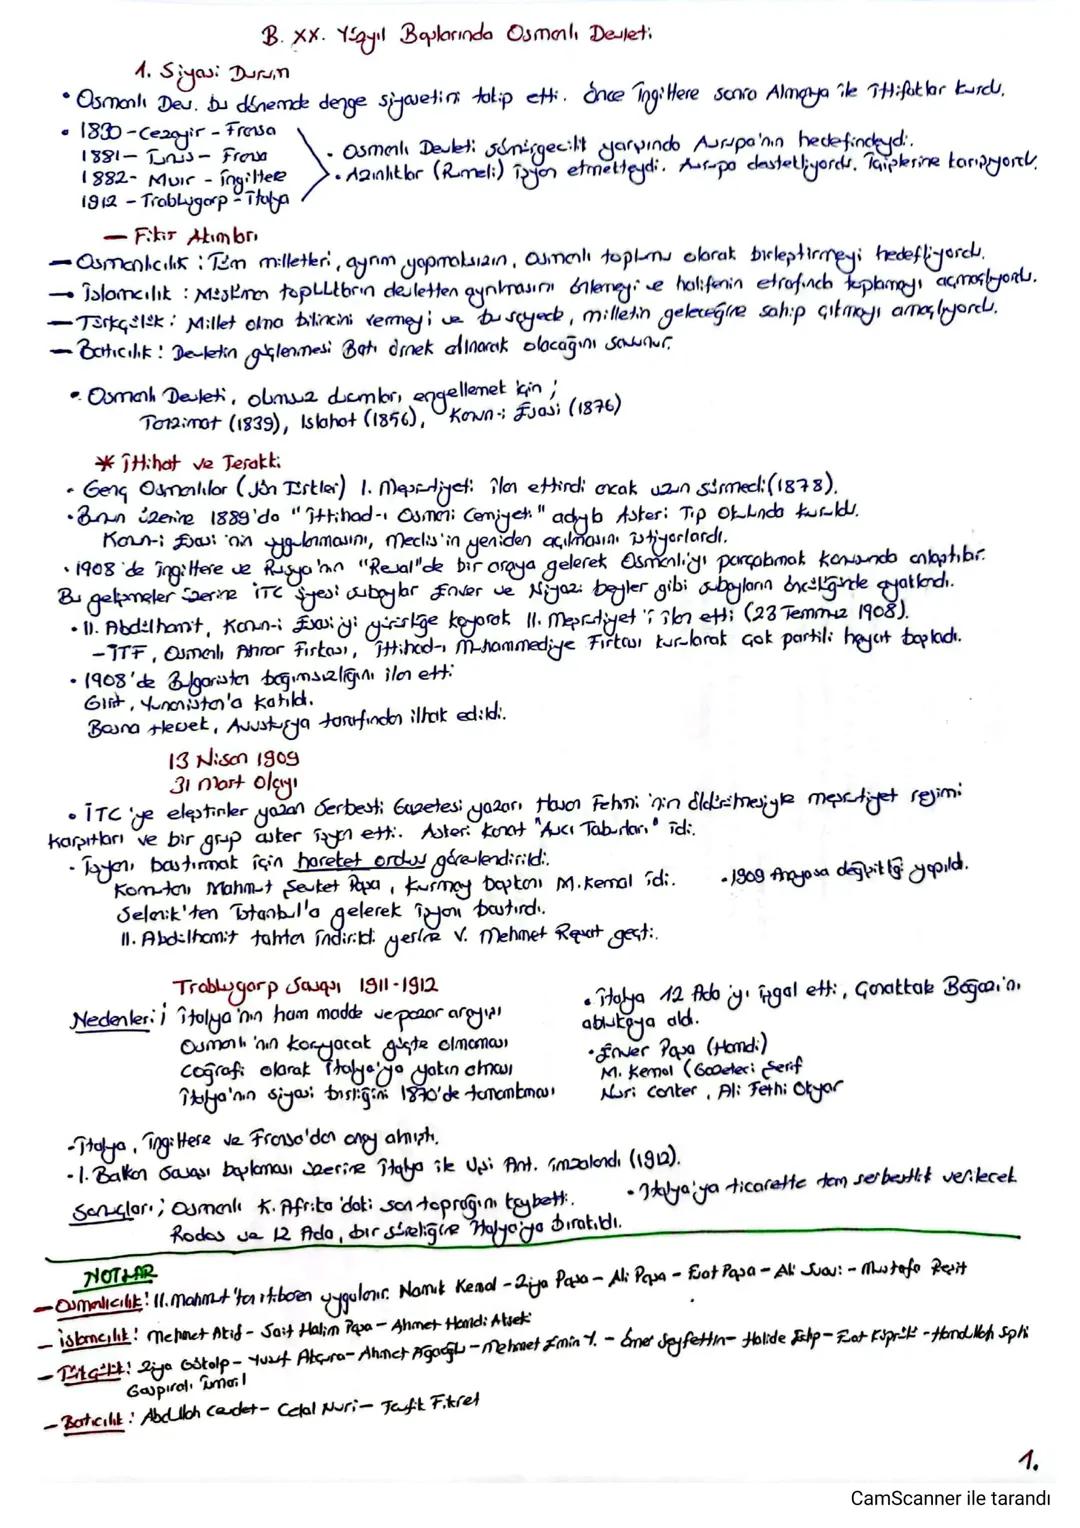 B. XX. Yüzyıl Başlarında Osmanlı Devleti
1. Siyasi Durum
• Osmanlı Dev. bu dönemde denge siyasetini takip etti. Önce İngiltere sonra Almanya ile ittifaklar kurdu.
• 1830 - Cezayir - Fransa
1881 - Tunus - Fransa
1882 - Mısır - İngiltere
1912 - Trablusgarp - İtalya
• Osmanlı Devleti sömürgecilik yarışında Avrupa'nın hedefindeydi.
• Azınlıklar (Rumeli) isyan etmekteydi. Avrupa destekliyordu. İçişlerine karışıyordu.
— Fikir Akımları
— Osmanlıcılık : Tüm milletleri, ayrım yapmaksızın, Osmanlı toplumu olarak birleştirmeyi hedefliyordu.
— İslamcılık : Müslüman toplulukların devletten ayrılmasını önlemeyi ve halifenin etrafında toplamayı amaçlıyordu.
— Türkçülük : Millet olma bilincini vermeyi ve bu sayede, milletin geleceğine sahip çıkmayı amaçlıyordu.
— Batıcılık : Devletin güçlenmesi Batı örnek alınarak olacağını savunur.
• Osmanlı Devleti, olumsuz durumları engellemek için ;
Tanzimat (1839), Islahat (1856), Kanun-i Esasi (1876)
* İttihat ve Terakki
• Genç Osmanlılar (Jön Türkler) I. Meşrutiyeti ilan ettirdi ancak uzun sürmedi (1878).
• Bunun üzerine 1889'da "İttihad-ı Osmani Cemiyeti" adıyla Askeri Tıp Okulunda kuruldu.
Kanun-i Esasi'nin uygulanmasını, Meclis'in yeniden açılmasını istiyorlardı.
• 1908'de İngiltere ve Rusya'nın "Reval"de bir araya gelerek Osmanlıyı parçalamak konusunda anlaştılar.
Bu gelişmeler üzerine İTC üyesi subaylar Enver ve Niyazi beyler gibi subayların öncülüğünde ayaklandı.
• II. Abdülhamit, Kanun-i Esasi'yi yürürlüğe koyarak II. Meşrutiyet'i ilan etti (23 Temmuz 1908).
- İTF, Osmanlı Ahrar Fırkası, İttihad-ı Muhammediye Fırkası kurularak çok partili hayat başladı.
• 1908'de Bulgaristan bağımsızlığını ilan etti
Girit, Yunanistan'a katıldı.
Bosna Hersek, Avusturya tarafından ilhak edildi.
13 Nisan 1909
31 Mart Olayı
• İTC'ye eleştiriler yazan Serbesti Gazetesi yazarı Hasan Fehmi'nin öldürülmesiyle meşrutiyet rejimi
karşıtları ve bir grup asker isyan etti. Askeri kanat "Avcı Taburları" idi.
• İsyanı bastırmak için hareket ordusu görevlendirildi.
Komutanı Mahmut Şevket Paşa, kurmay başkanı M. Kemal idi.
• 1909 Anayasa değişikliği yapıldı.
Selanik'ten İstanbul'a gelerek isyanı bastırdı.
II. Abdülhamit tahttan indirildi yerine V. Mehmet Reşat geçti.
Trablusgarp Savaşı 1911-1912
Nedenleri ; İtalya'nın ham madde ve pazar arayışı
Osmanlı'nın koruyacak güçte olmaması
Coğrafi olarak İtalya'ya yakın olması
İtalya'nın siyasi birliğini 1870'de tamamlaması
• İtalya 12 Ada'yı işgal etti, Çanakkale Boğazı'nı
ablukaya aldı.
• Enver Paşa (Hamdi)
M. Kemal (Gazeteci Şerif
Nuri Conker, Ali Fethi Okyar
- İtalya, İngiltere ve Fransa'dan onay almıştı.
- I. Balkan Savaşı başlaması üzerine İtalya ile Uşi Ant. imzalandı (1912).
Sonuçları ; Osmanlı K. Afrika'daki son toprağını kaybetti.
• İtalya'ya ticarette tam serbestlik verilecek
Rodos ve 12 Ada, bir süreliğine İtalya'ya bırakıldı.
NOTLAR
— Osmanlıcılık : II. Mahmut'tan itibaren uygulanır. Namık Kemal - Ziya Paşa - Ali Paşa - Fuat Paşa - Ali Suavi - Mustafa Reşit
— İslamcılık : Mehmet Akif - Sait Halim Paşa - Ahmet Hamdi Akseki
— Türkçülük : Ziya Gökalp - Yusuf Akçura - Ahmet Ağaoğlu - Mehmet Emin Y. - Ömer Seyfettin - Halide Edip - Fuat Köprülü - Hamdullah Suphi
Gaspıralı İsmail
— Batıcılık : Abdullah Cevdet - Celal Nuri - Tevfik Fikret
1.
CamScanner ile tarandı